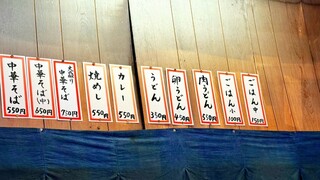 中華そば
550円
中華そば(中)
650円
大盛り
中華そば
750円
焼めし
550円
カレー
550円
うどん
350円
卵うどん
450円
肉うどん
550円
ごはん小
100円
ごはん中
150円